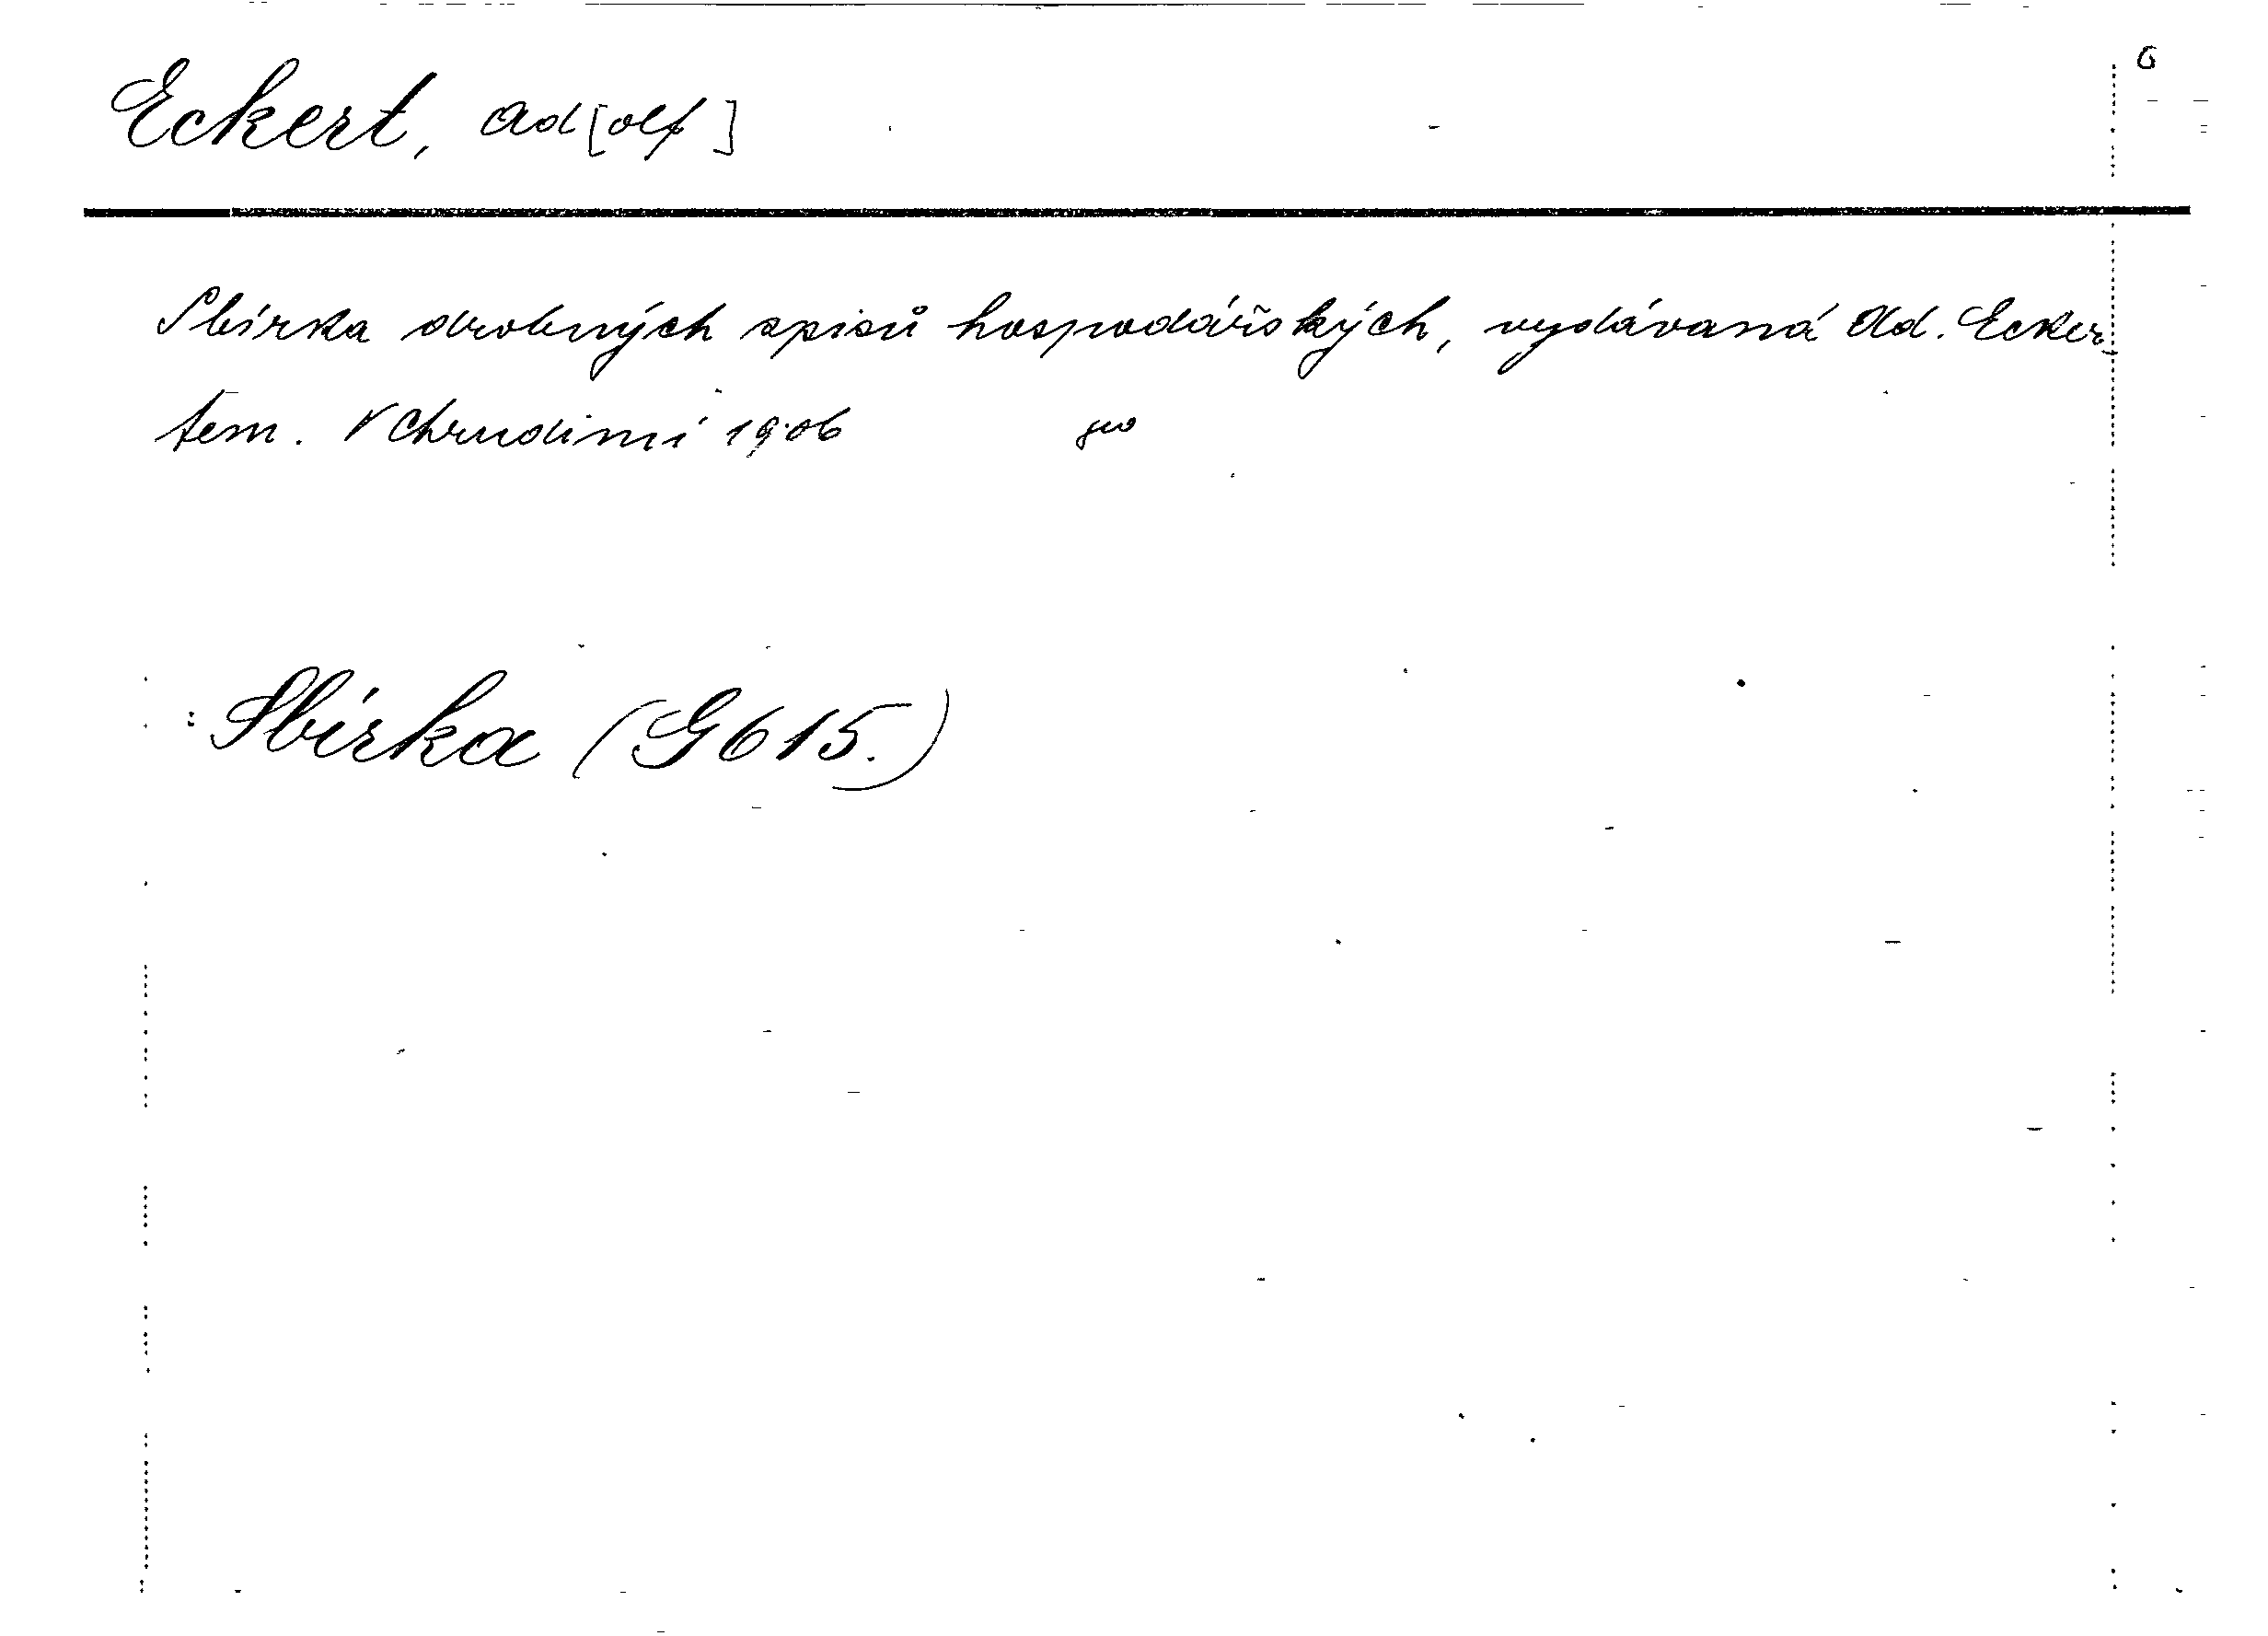 6
Eckert, Ad[olf]
Sbírka drobných spisů hospodářských, vydávaná Ad. Ecker-
tem. V Chrudimi 1906 8°
: Sbírka (G 615.)